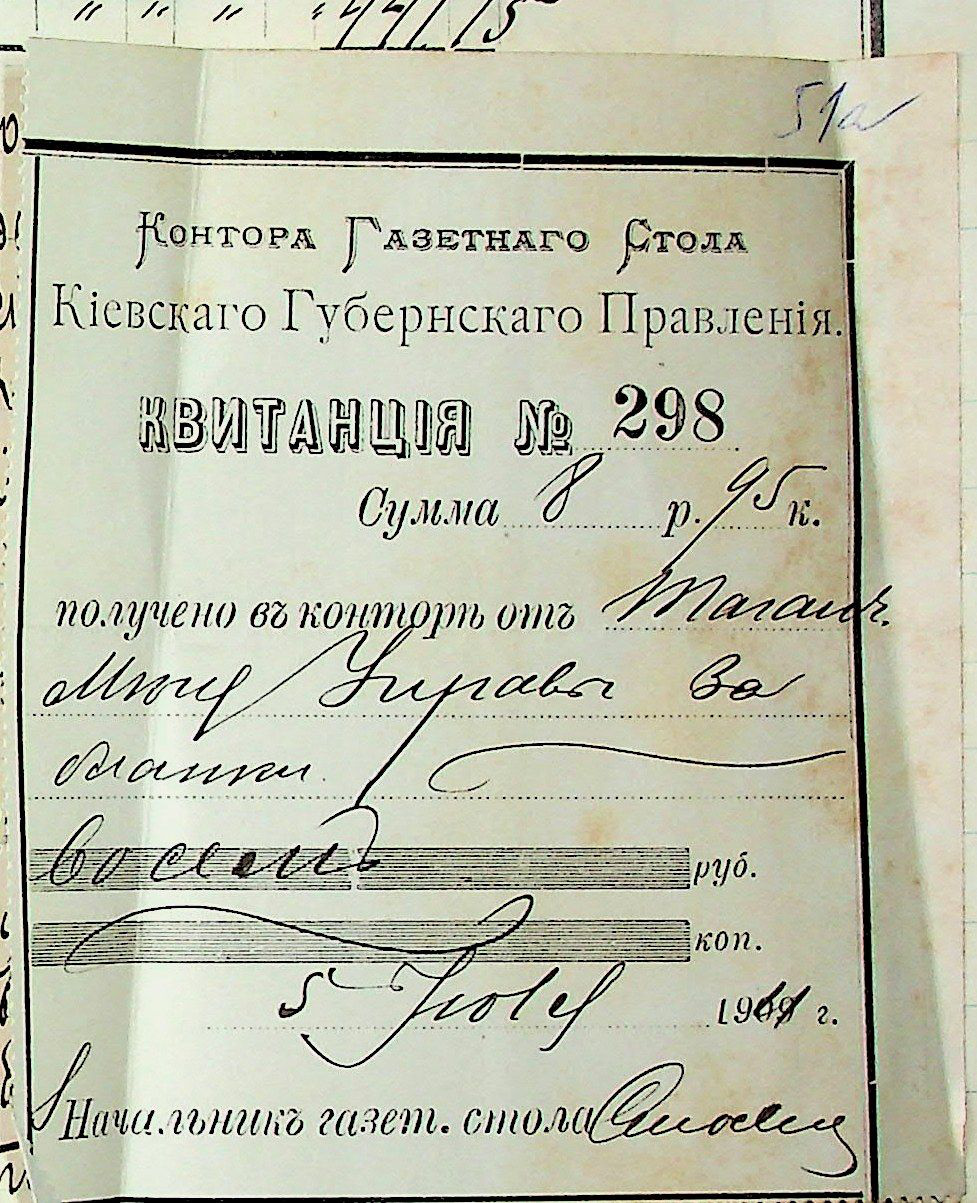 " " " " 44 75
51а
Контора Газетнаго Стола
Кіевскаго Губернскаго Правленія.
КВИТАНЦІЯ № 298
Сумма 8 р. 95 к.
получено въ конторѣ отъ
Управы За
бланки.
восемь руб.
коп.
5 1911 г.
Начальникъ газет. стола